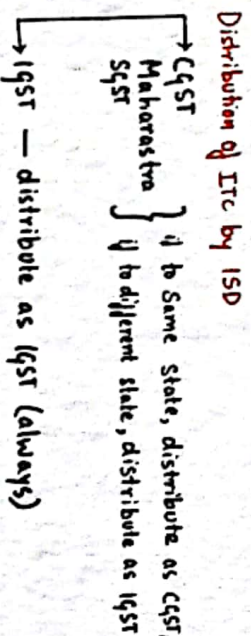 Distribution of ITC by ISD
CGST
Maharastra
SGST
if to same state, distribute as CGST,
if to different state, distribute as IGST
IGST — distribute as IGST (always)